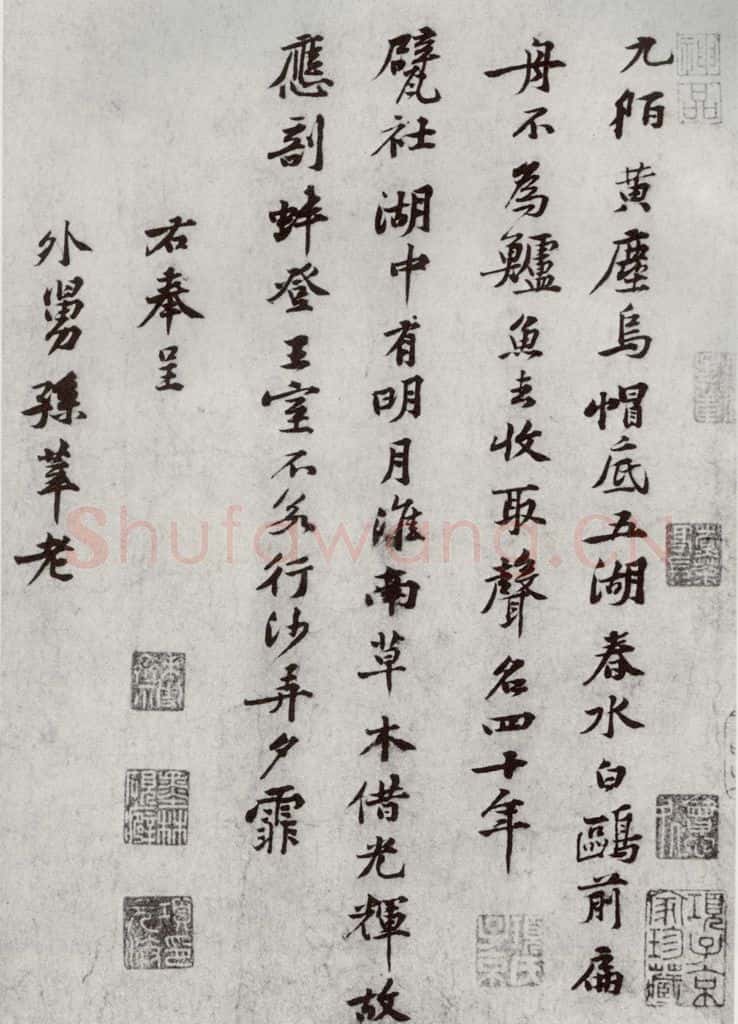 神品
九陌黃塵烏帽底五湖春水白鷗前扁
舟不為鱸魚去收取聲名四十年
甓社湖中有明月淮南草木借光輝故
應剖蚌登王室不若行沙弄夕霏
右奉呈
外舅孫莘老
項子京家珍藏
墨林硯癖
Shufawang.CN